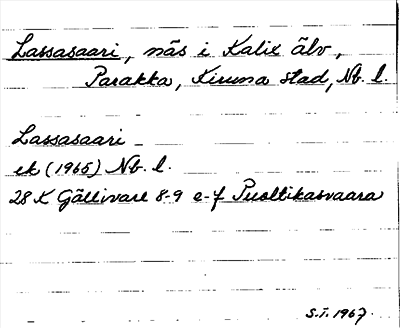 Lassasaari, näs i Kalix älv,
Parakka, Kiruna stad, Nb. l.
Lassasaari –
ek (1965) Nb. l.
28 K Gällivare 8-9 e-f Puoltikasvaara
S.I. 1967.